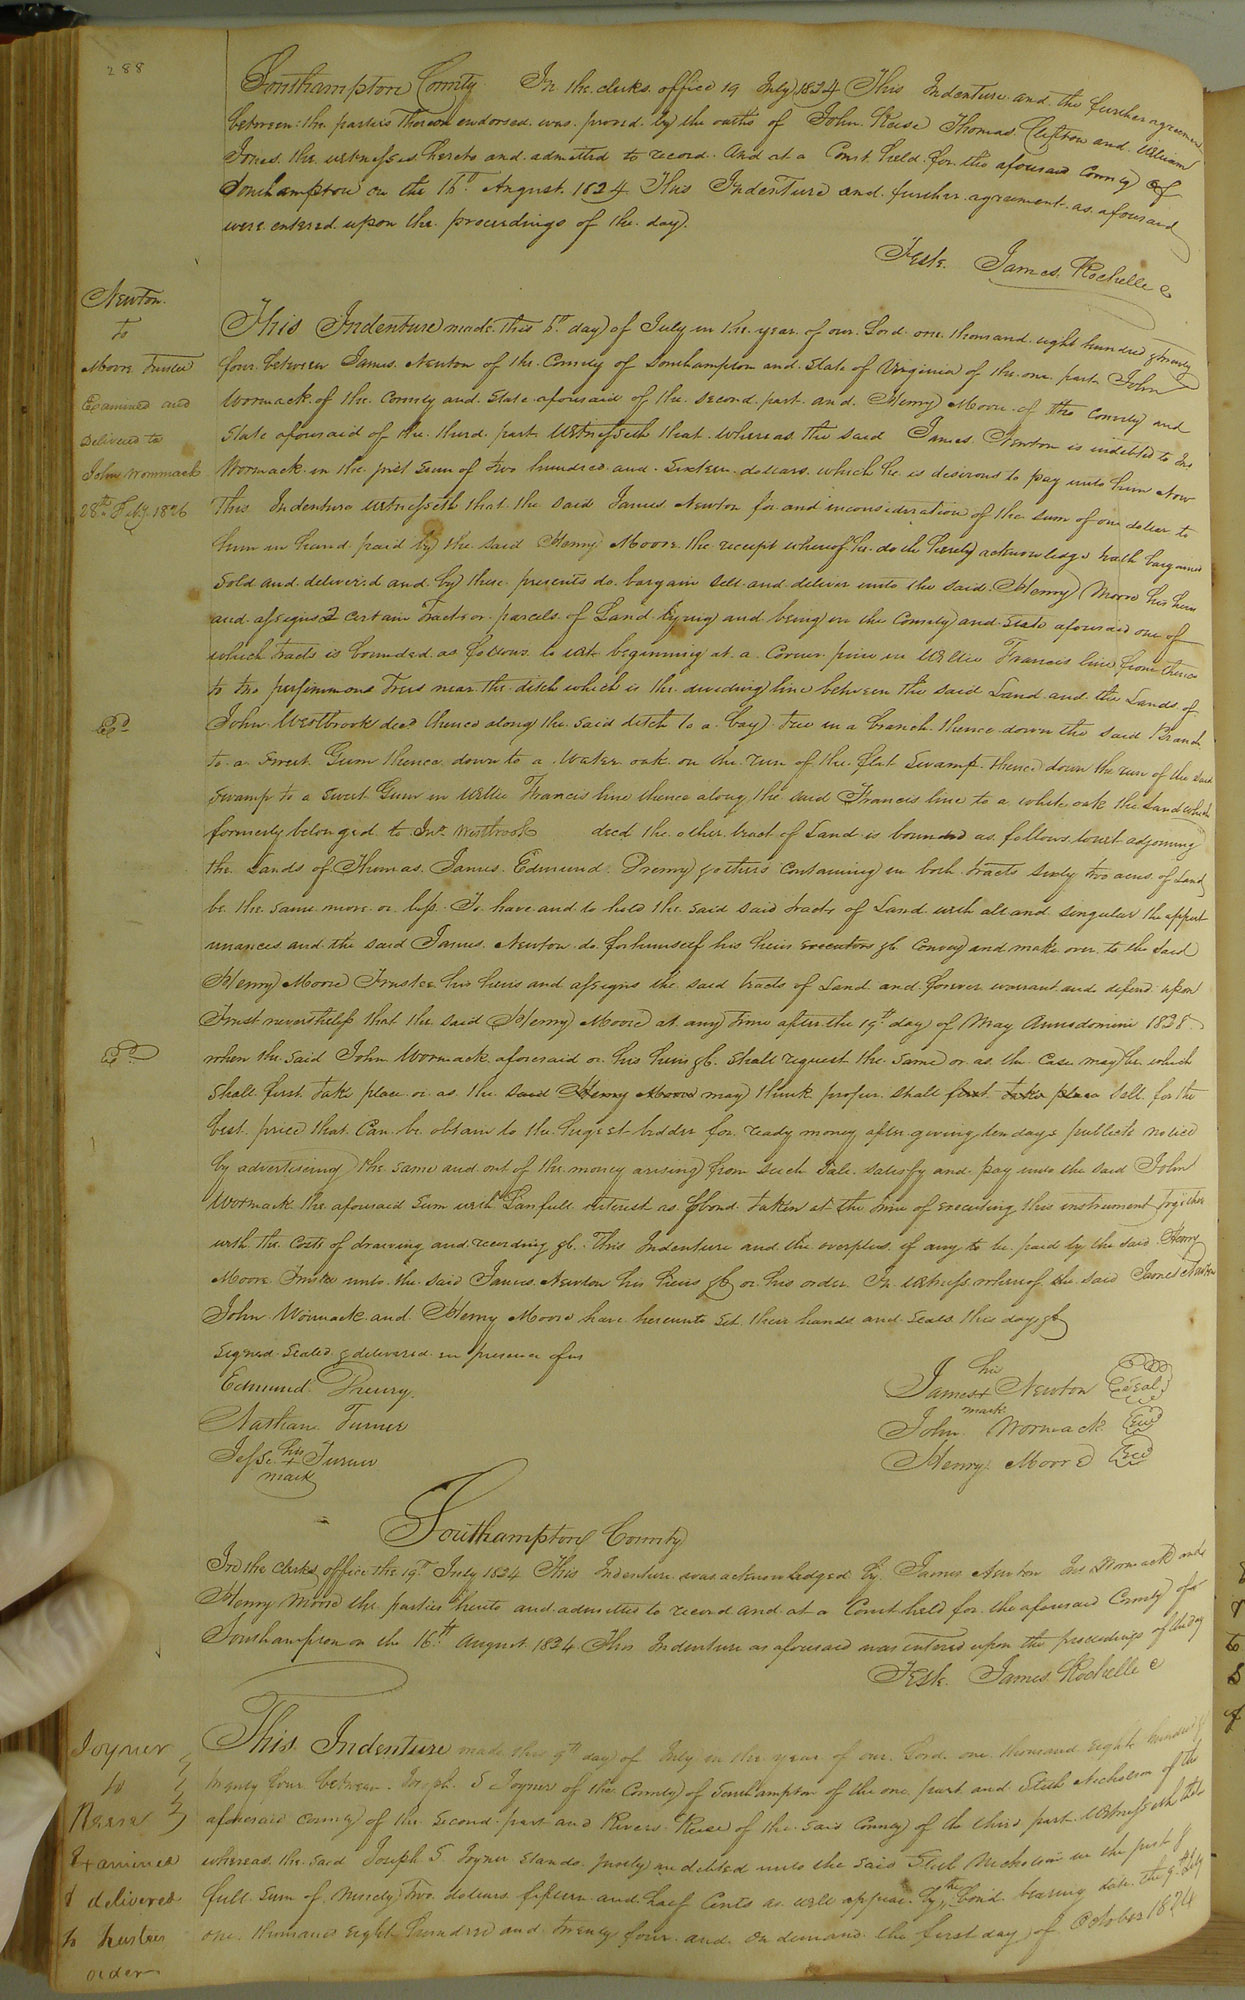 288
Southampton County In the clerks office 19 July 1824 This Indenture and the further agreement
between the parties thereon endorsed was proved by the oaths of John Reese Thomas Clifton and William
Jones the witnesses hereto and admitted to record. And at a Court held for the aforesaid County of
Southampton on the 16th August 1824 This Indenture and further agreement as aforesaid
were entered upon the proceedings of the day.
Teste James Rochelle c
Newton
to
Moore Trustee
Examined and
Delivered to
John Wommack
28th Feby. 1826
This Indenture made this 6th day of July in the year of our Lord one thousand eight hundred & twenty
four between James Newton of the County of Southampton and State of Virginia of the one part John
Wormack of the County and State aforesaid of the second part and Henry Moore of the County and
State aforesaid of the third part Witnesseth that whereas the said James Newton is indebted to Jno
Wormack in the just sum of two hundred and sixteen dollars which he is desirous to pay unto him Now
This Indenture witnesseth that the said James Newton for and inconsideration of the sum of one dollar to
him in hand paid by the said Henry Moore the receipt whereof he doth hereby acknowledge hath bargained
sold and delivered and by these presents do bargain sell and deliver unto the said Henry Moore his heirs
and assigns 2 certain tracts or parcels of Land lying and being in the County and State aforesaid one of
which tracts is bounded as follows to wit beginning at a Corner pine in Willie Francis line from thence
to two persimmons trees near the ditch which is the dividing line between the said Land and the Lands of
Esd
John Westbrook decd thence along the said ditch to a bay tree in a branch thence down the said Branch
to a Sweet Gum thence down to a Water oak on the run of the flat Swamp thence down the run of the said
Swamp to a Sweet Gum in Willie Francis line thence along the said Francis line to a white oak the Land which
formerly belonged to Jno. Westbrook decd the other tract of Land is bounded as follows towit adjoining
the Lands of Thomas James Edmund Preney & others Containing in both tracts sixty two acres of Land
be the same more or less. To have and to hold the said said tracts of Land with all and singular the appert
unances and the said James Newton do for himself his heirs executors &c Convey and make over to the said
Henry Moore Trustee his heirs and assigns the said tracts of Land and forever warrant and defend upon
Trust nevertheless that the said Henry Moore at any time after the 19th day of May Annodomini 1828
Esd
when the said John Wormack aforesaid or his heirs &c. shall request the same or as the case may be which
shall first take place or as the said Henry Moore may think proper shall first take place sell for the
best price that can be obtain to the higest bidder for ready money after giving ten days publick notice
by advertising the same and out of the money arising from such sale satisfy and pay unto the said John
Wormack the aforesaid sum with Lawfull interest as & bond taken at the time of executing this instrument together
with the costs of drawing and recording &c. This Indenture and the overplus if any to be paid by the said Henry
Moore Trustee unto the said James Newton his heirs &c or his order. In witness whereof the said James Newton
John Wormack and Henry Moore have hereunto set their hands and seals this day &c
Signed Sealed & delivered in presence of us
Edmund Preney.
Nathan Turner
Jesse his + mark Turner
James his + mark Newton Seal
John Wormack Seal
Henry Moore Seal
Southampton County
In the clerks office the 19th July 1824 This Indenture was acknowledged by James Newton Jno Womack and
Henry Moore the parties hereto and admitted to record and at a Court held for the aforesaid County of
Southampton on the 16th August 1824 This Indenture as aforesaid was entered upon the proceedings of the day
Teste James Rochelle c
Joyner
to
Reese
Examined
& delivered
to trustees
order
This Indenture made this 9th day of July in the year of our Lord one thousand eight hundred &
twenty four between Joseph S Joyner of the County of Southampton of the one part and Steth Nicholson of the
aforesaid county of the second part and Rivers Reese of the said County of the third part Witnesseth that
whereas the said Joseph S. Joyner stands justly indebted unto the said Steth Nicholson in the just &
full sum of Ninety two dollars fifteen and half Cents as will appear by the bond bearing date the 9th July
one thousand eight hundred and twenty four and on demand the first day of October 1824